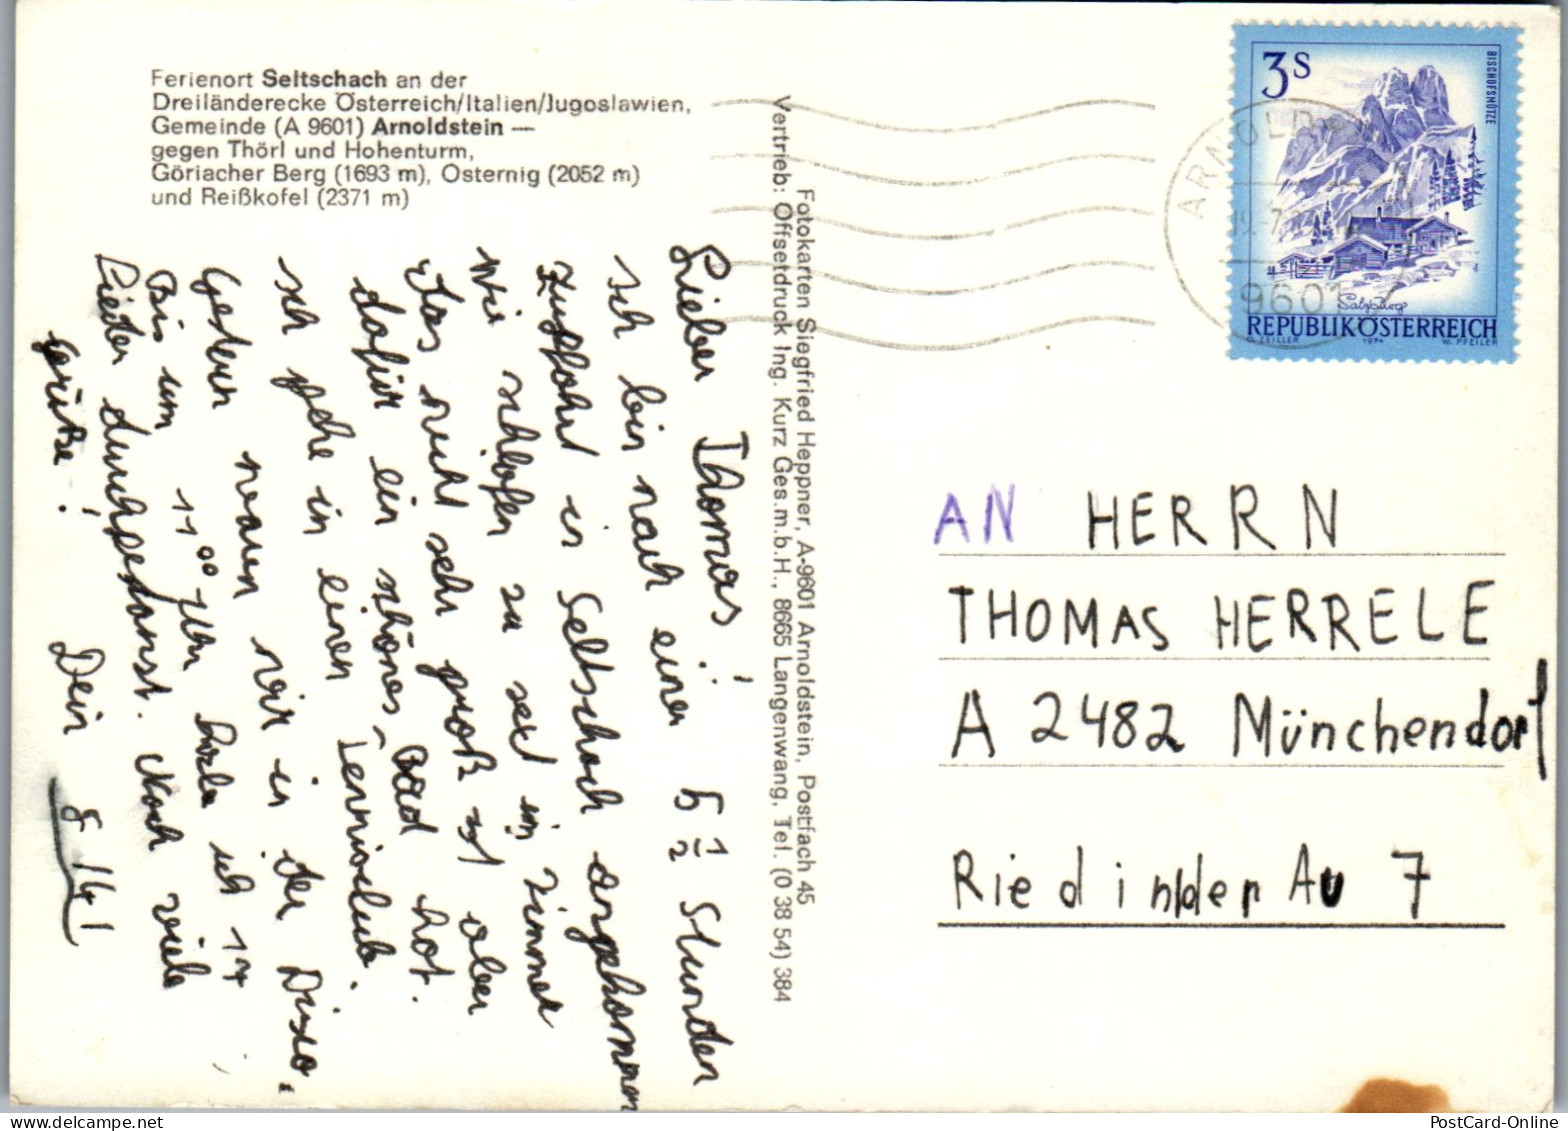 Ferienort Seltschach an der
Dreiländerecke Österreich/Italien/Jugoslawien,
Gemeinde (A 9601) Arnoldstein —
gegen Thörl und Hohenturm,
Göriacher Berg (1693 m), Osternig (2052 m)
und Reißkofel (2371 m)
Lieber Thomas!
Ich bin nach einer 5 1/2 Stunden
Zugfahrt in Seltschach angekommen
Wir schlafen zu im Zimmer
das nicht sehr groß ist aber
dafür ein schönes Bad hat.
Ich gehe in einen Tennisclub.
Gestern waren wir in der Disco.
Bis um 11 00 Uhr habe ich 14
Lieder durchgedanst. Noch viele
Grüße! Dein
Fotokarten Siegfried Heppner, A-9601 Arnoldstein, Postfach 45
Vertrieb: Offsetdruck Ing. Kurz Ges.m.b.H., 8665 Langenwang, Tel. (0 38 54) 384
3 S
BISCHOFSMÜTZE
Salzburg
REPUBLIK ÖSTERREICH
O. ZEILLER 1974 W. PFEILER
9601
AN HERRN
THOMAS HERRELE
A 2482 Münchendorf
Ried in der Au 7
PostCard-Online